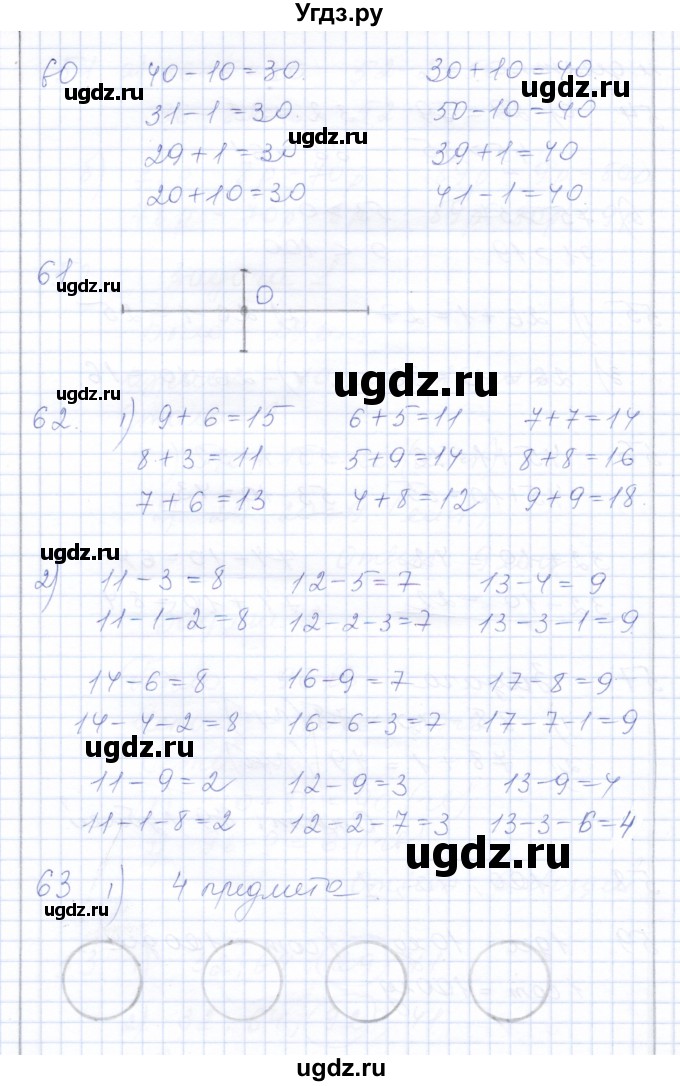 Угдз.ру
60 40-10=30. 30+10=40.
ugdz.ru ugdz.ru
31-1=30. 50-10=40
ugdz.ru
29+1=30 39+1=40
20+10=30 41-1=40.
61
ugdz.ru
O
ugdz.ru
ugdz.ru
62. 1) 9+6=15 6+5=11 7+7=14
8+3=11 5+9=14 8+8=16
7+6=13 4+8=12 9+9=18.
ugdz.ru
2) 11-3=8 12-5=7 13-4=9
11-1-2=8 12-2-3=7 13-3-1=9
14-6=8 16-9=7 17-8=9
14-4-2=8 16-6-3=7 17-7-1=9
ugdz.ru
11-9=2 12-9=3 13-9=4
11-1-8=2 12-2-7=3 13-3-6=4.
ugdz.ru
63 1) 4 предмета.
ugdz.ru
ugdz.ru